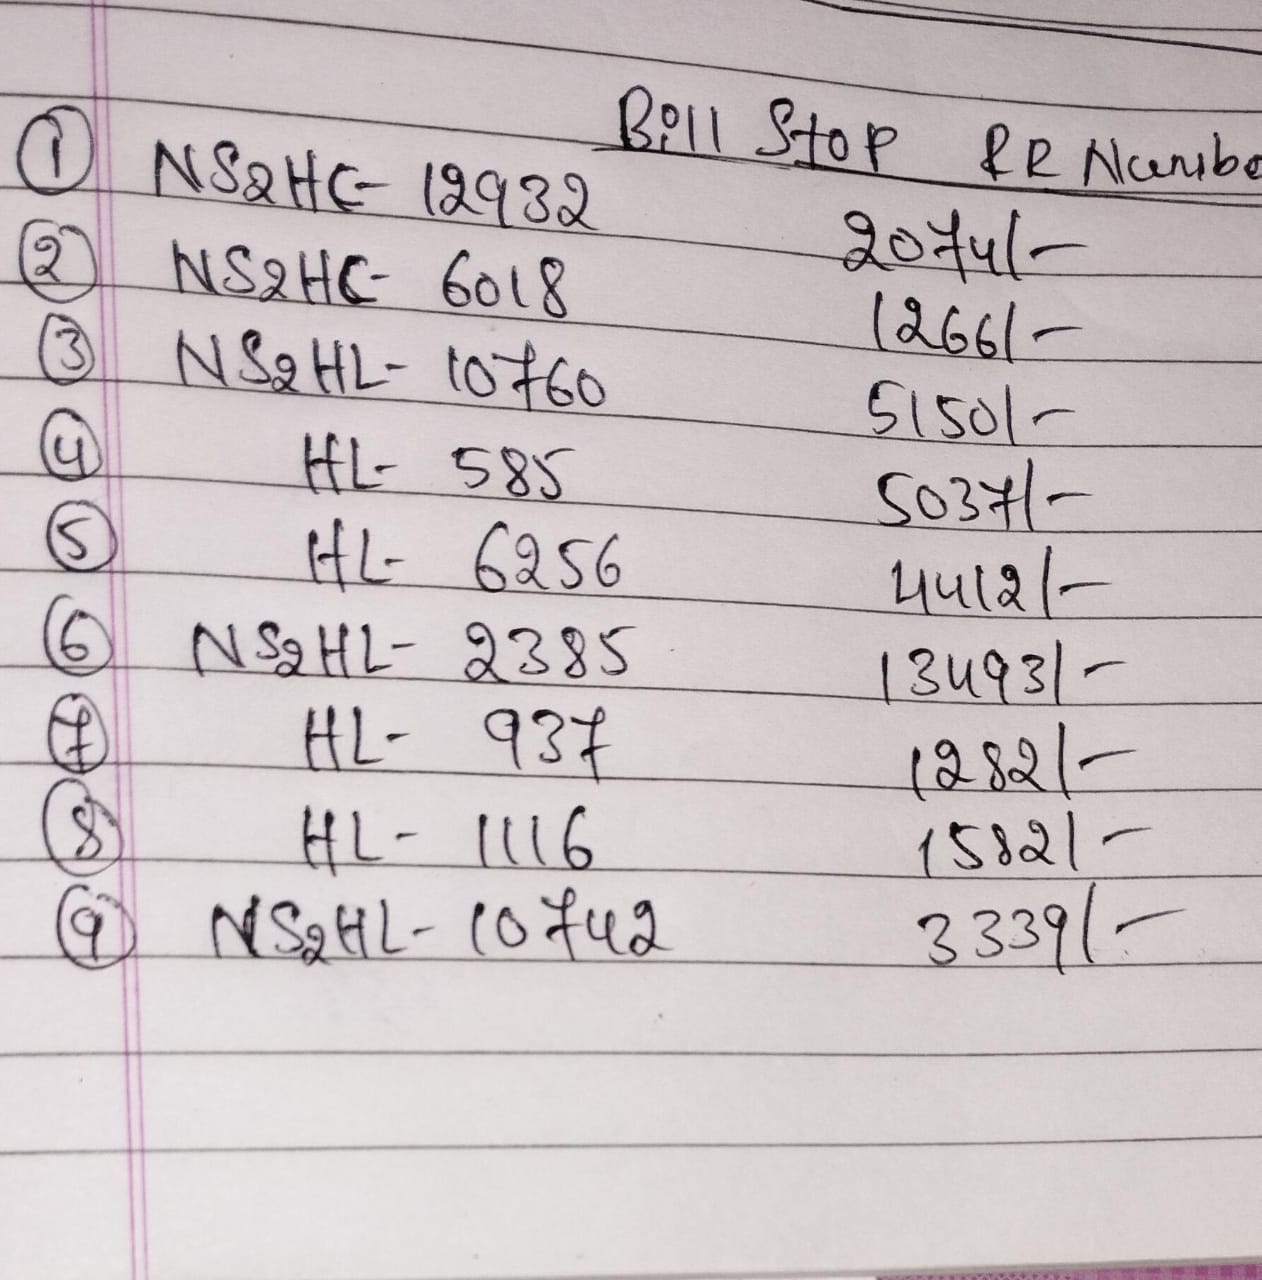 Bill Stop RR Numbe
① NS2HC- 12932 2074/-
② NS2HC- 6018 1266/-
③ NS2HL- 10760 5150/-
④ HL- 585 5037/-
⑤ HL- 6256 4412/-
⑥ NS2HL- 2385 13493/-
⑦ HL- 937 1282/-
⑧ HL- 1116 1582/-
⑨ NS2HL- 10742 3339/-